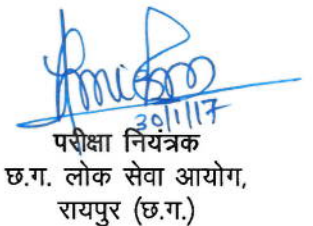 30/1/17
परीक्षा नियंत्रक
छ.ग. लोक सेवा आयोग,
रायपुर (छ.ग.)